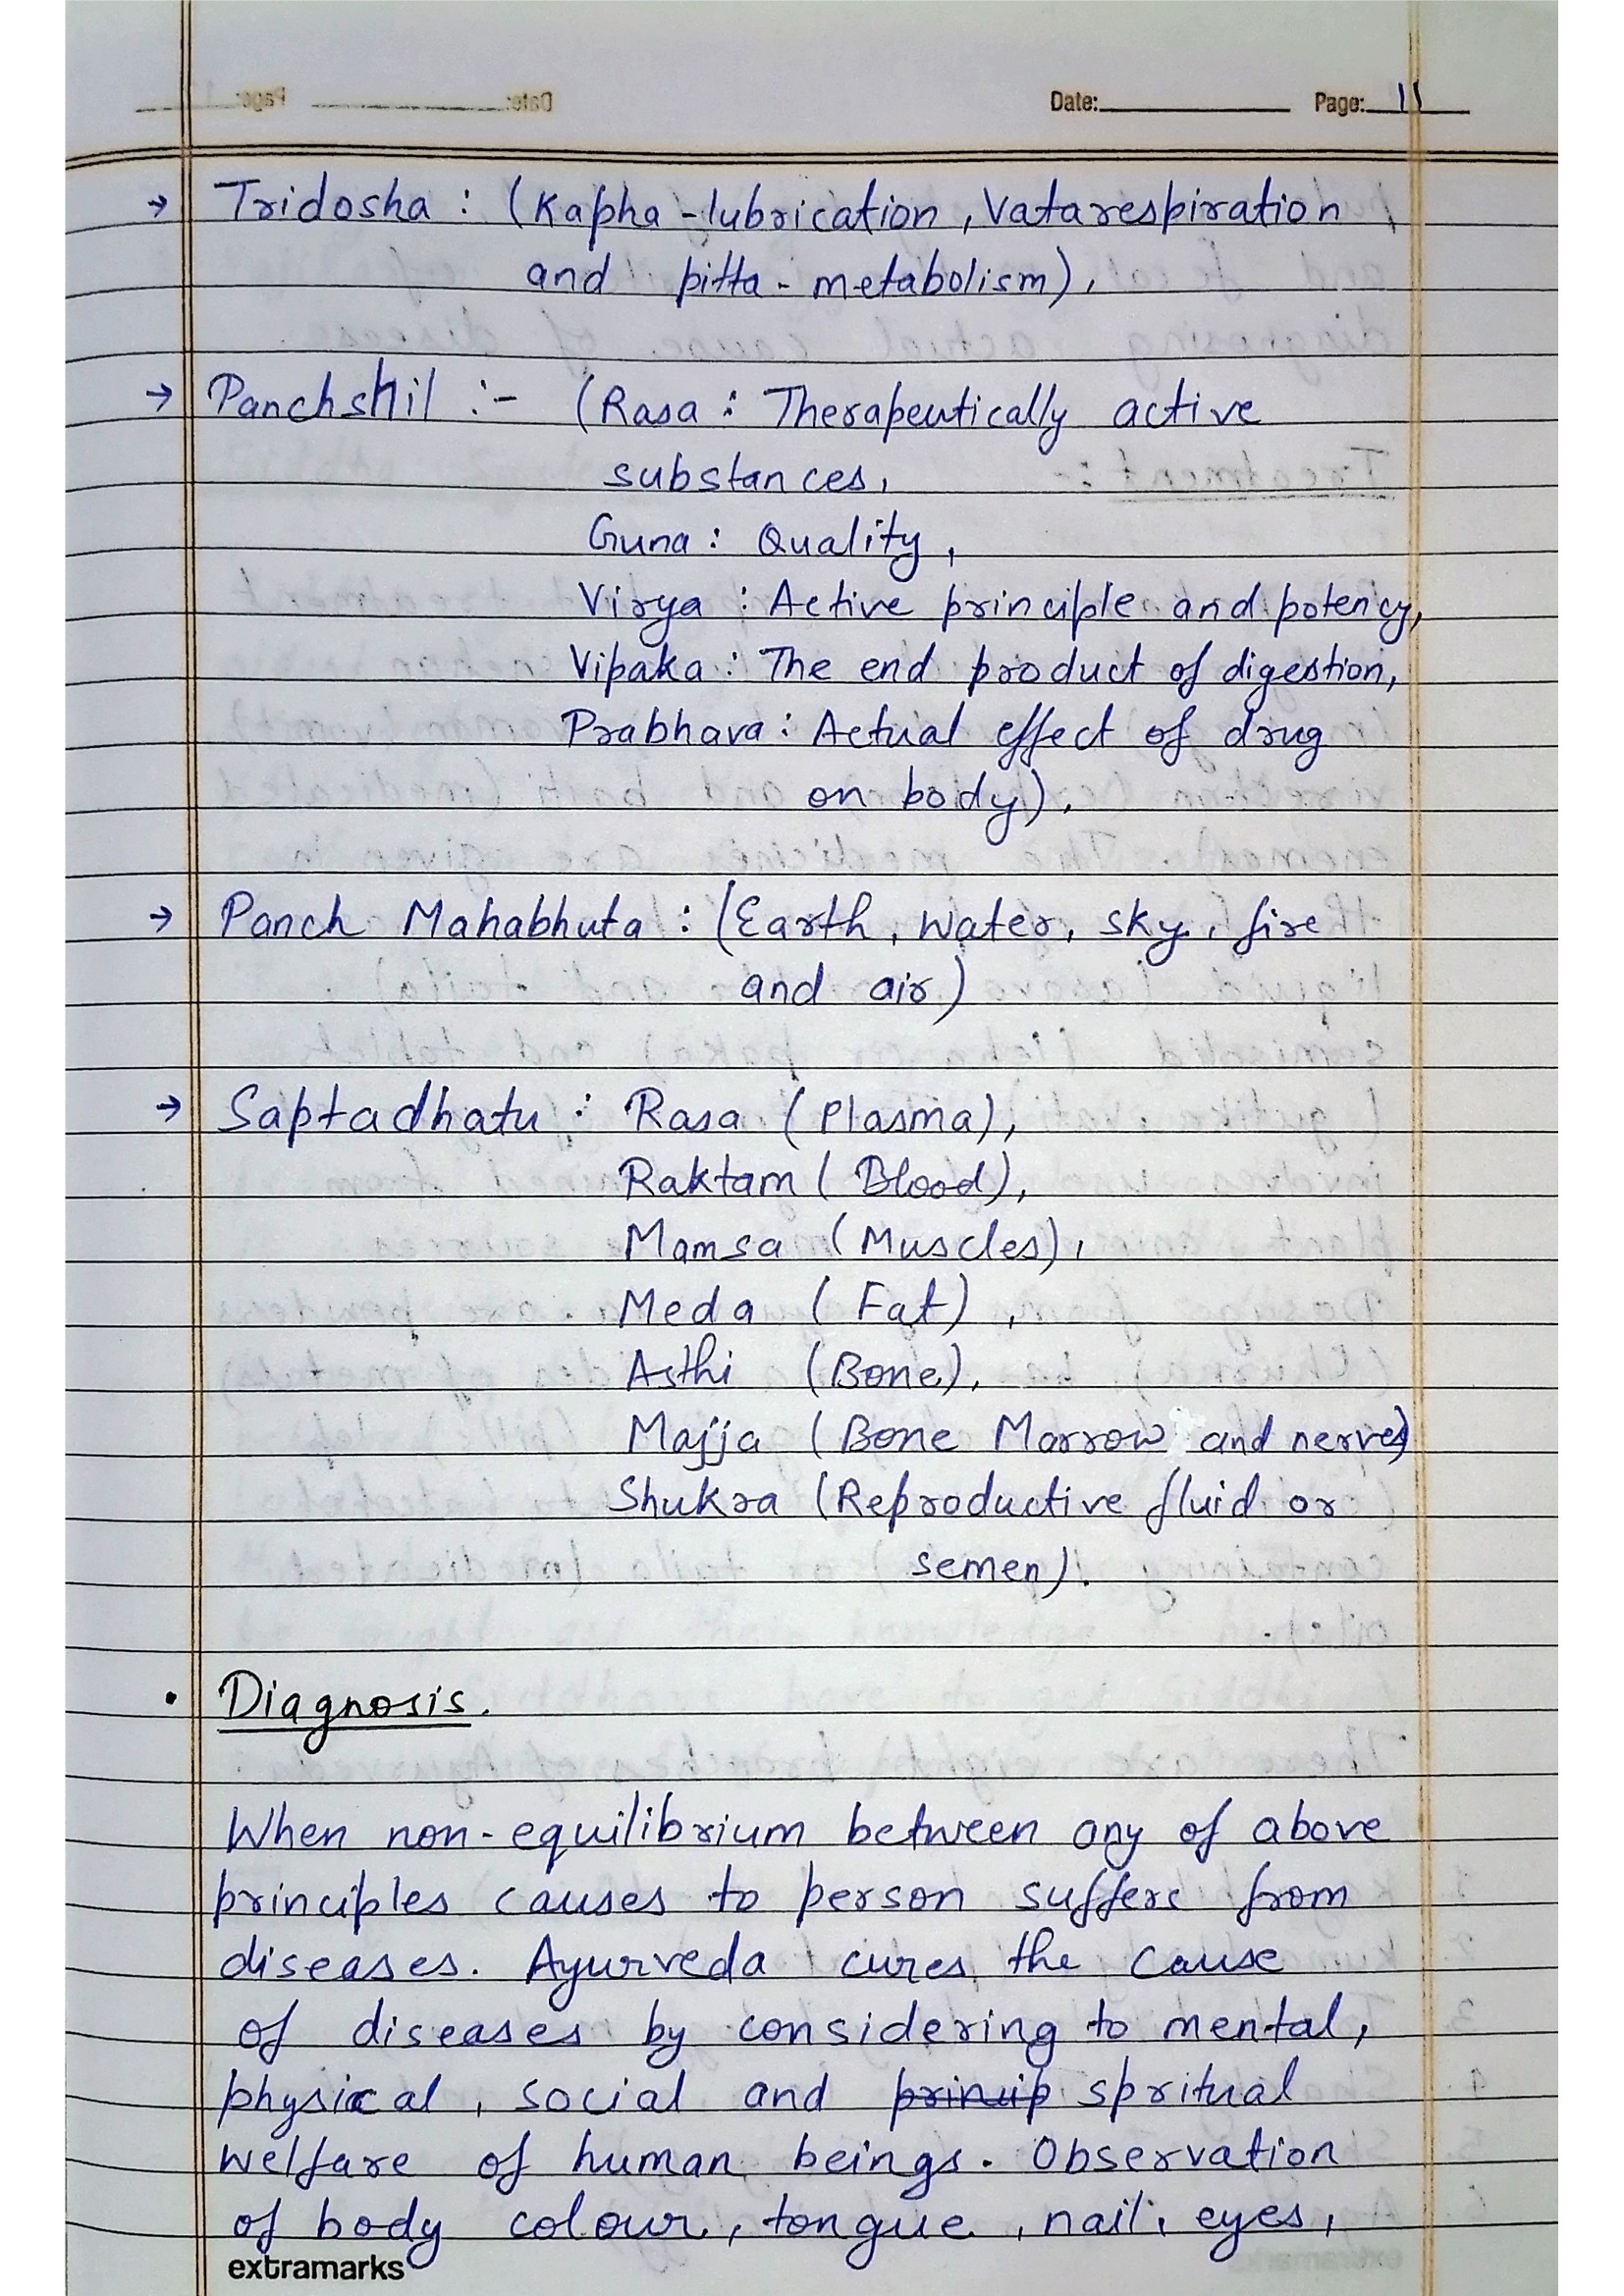 Date: Page: 11
→ Tridosha : (Kapha - lubrication, Vata respiration
and pitta - metabolism),
→ Panchshil :- (Rasa : Therapeutically active
substances,
Guna : Quality,
Virya : Active principle and potency,
Vipaka : The end product of digestion,
Prabhava : Actual effect of drug
on body).
→ Panch Mahabhuta : (Earth, water, sky, fire
and air)
→ Saptadhatu : Rasa (Plasma),
Raktam (Blood),
Mamsa (Muscles),
Meda (Fat),
Asthi (Bone),
Majja (Bone Marrow and nerves)
Shukra (Reproductive fluid or
semen).
• Diagnosis.
When non-equilibrium between any of above
principles causes to person suffers from
diseases. Ayurveda cures the cause
of diseases by considering to mental,
physical, social and princip spritual
welfare of human beings. Observation
of body colour, tongue, nail, eyes,
extramarks